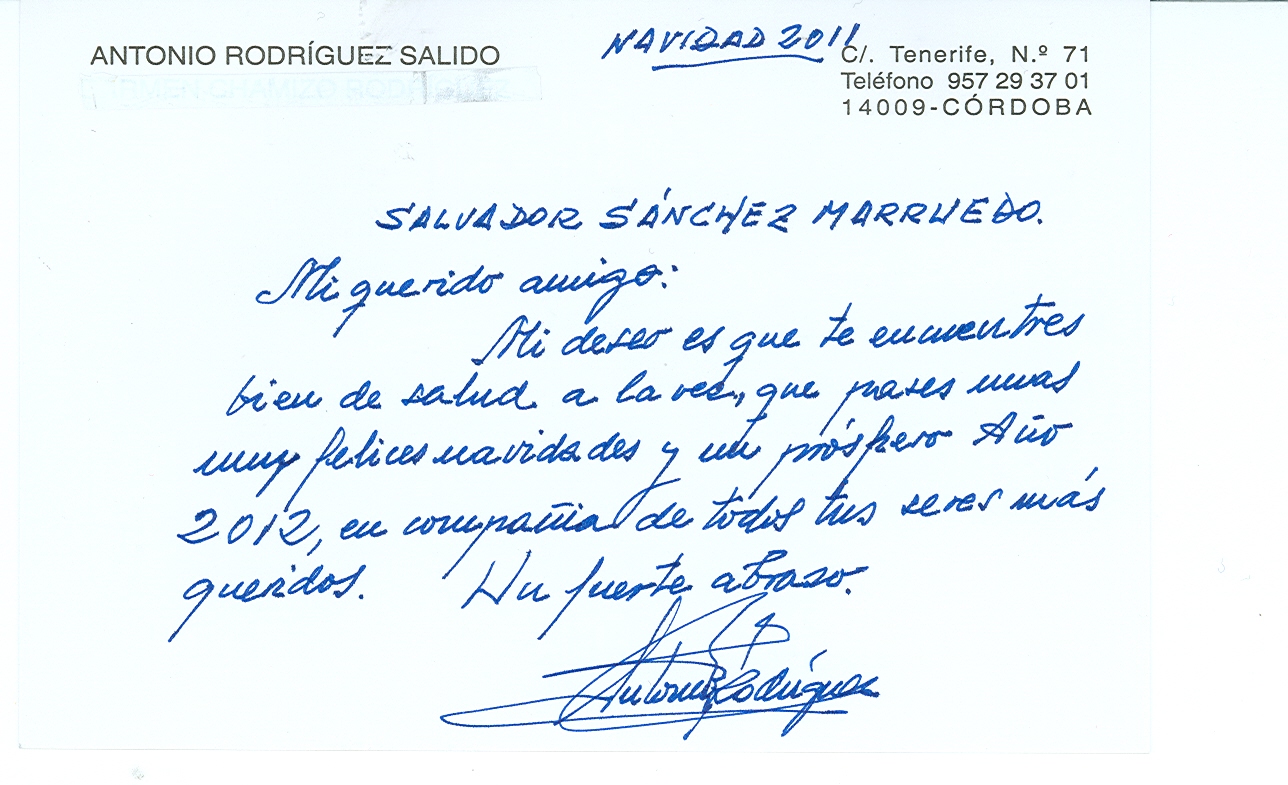 ANTONIO RODRÍGUEZ SALIDO
NAVIDAD 2011
C/. Tenerife, N.º 71
Teléfono 957 29 37 01
14009-CÓRDOBA
SALVADOR SÁNCHEZ MARRUEDO.
Mi querido amigo:
Mi deseo es que te encuentres
bien de salud a la vez, que pases unas
muy felices navidades y un próspero Año
2012, en compañia de todos tus seres más
queridos. Un fuerte abrazo.
Antonio Rodríguez